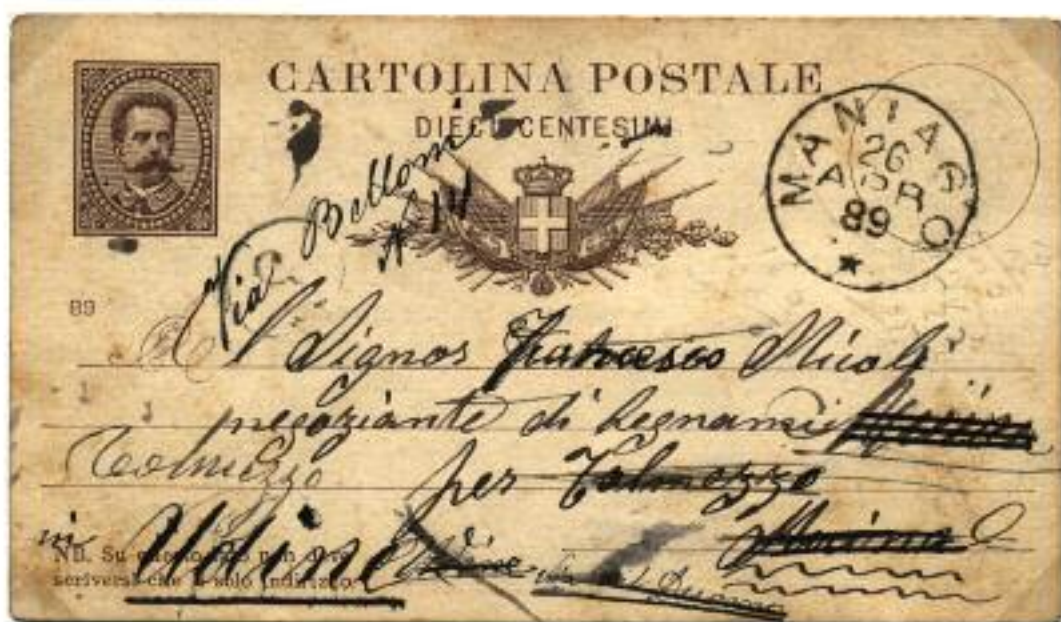 CARTOLINA POSTALE
DIECI CENTESIMI
MANIAGO
26
APR
89
Via Belloni
N 14
89
Signor Francesco Micoli
negoziante di legnami
Tolmezzo per Tolmezzo
in Udine
NB. Su questo lato non deve
scriversi che il solo indirizzo.